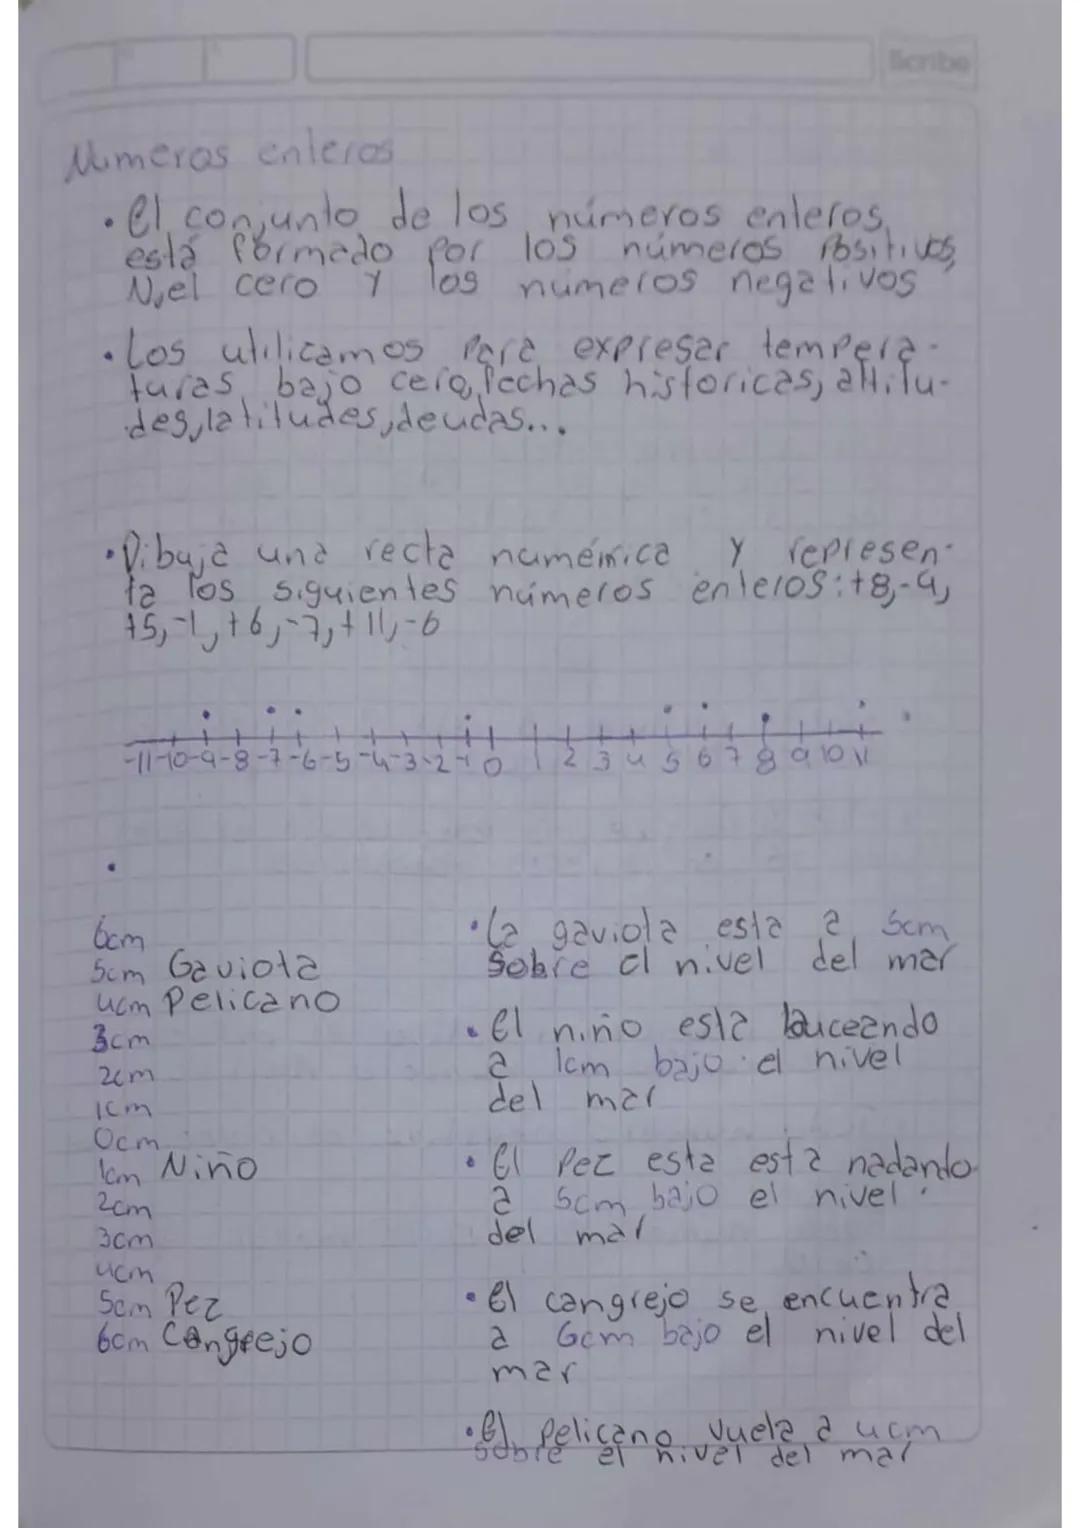 Scribe
Números enteros
• El conjunto de los números enteros,
está formado por los números positivos,
N, el cero y los números negativos
• Los utilicamos para expresar tempera-
turas bajo cero, fechas historicas, altitu-
des, latitudes, deudas...
• Dibuja una recta numérica y represen-
ta los siguientes números enteros: +8, -9,
+5, -1, +6, -7, +11, -6
-11 -10 -9 -8 -7 -6 -5 -4 -3 -2 -1 0 1 2 3 4 5 6 7 8 9 10 11
6cm
5cm Gaviota
4cm Pelicano
3cm
2cm
1cm
0cm
1cm Niño
2cm
3cm
4cm
5cm Pez
6cm Cangrejo
• La gaviota esta a 5cm
sobre el nivel del mar
• El niño esta buceando
a 1cm bajo el nivel
del mar
• El Pez esta esta nadando
a 5cm bajo el nivel
del mar
• El cangrejo se encuentra
a 6cm bajo el nivel del
mar
• El pelicano vuela a 4cm
sobre el nivel del mar